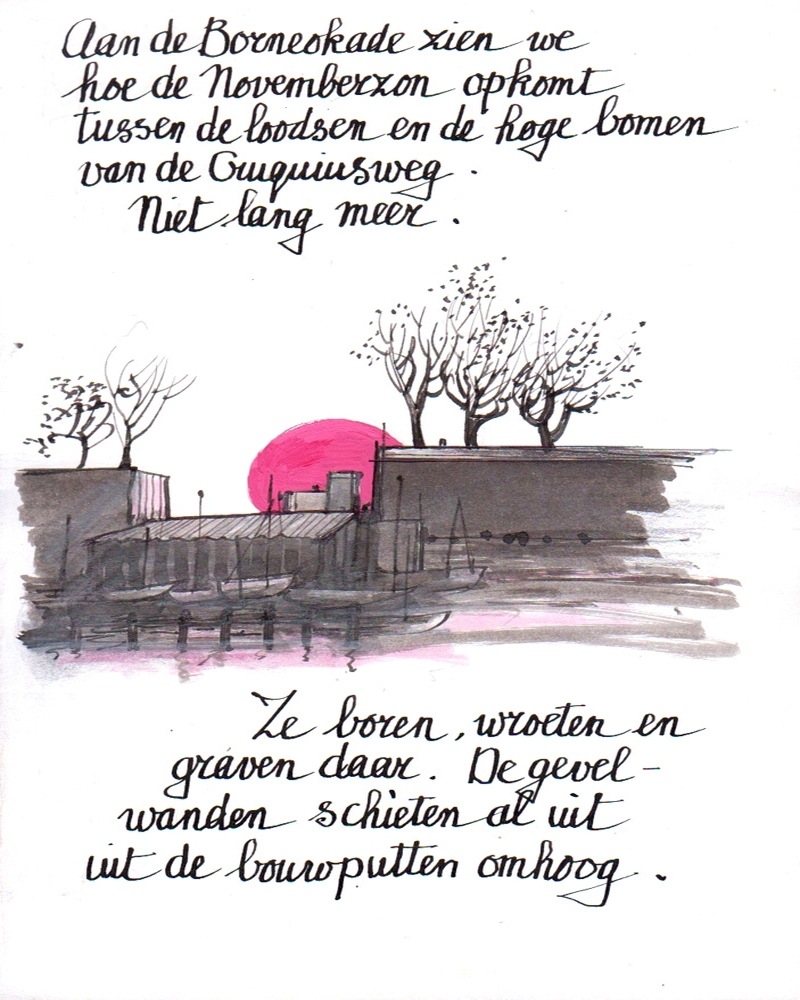 Aan de Borneokade zien we
hoe de Novemberzon opkomt
tussen de loodsen en de hoge bomen
van de Cruquiusweg.
Niet lang meer.
Ze boren, wroeten en
graven daar. De gevel-
wanden schieten al uit
uit de bouwputten omhoog.